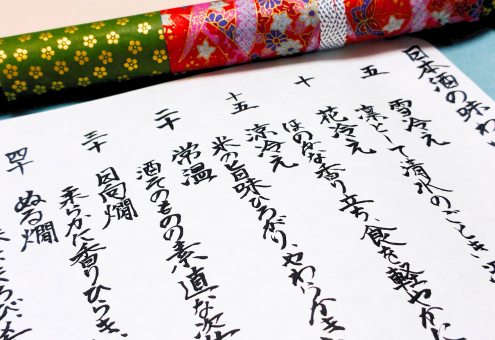 日本酒の味わ
五
雪冷え
凛として清水のごとき、
十
花冷え
ほのかな香り立ち、食を軽やかに
十五
涼冷え
米の旨味ひろがり、やわらかき
二十
常温
酒そのものの素直な
三十
日向燗
柔らかに香りひらき、
四十
ぬる燗